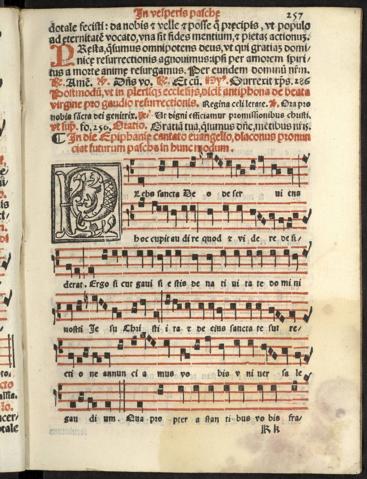 In vesperis pasche
257
dotale fecisti: da nobis ⁊ velle ⁊ posse q̃ præcipis, vt populo
ad eternitatẽ vocato, vna sit fides mentium, ⁊ pietas actionũ.
PResta, q̃sumus omnipotens deus, vt qui gratias domi-
nice resurrectionis agnouimus: ipsi per amorem spiri
tus a morte anime resurgamus. Per eundem dominũ
℟. Amẽ. ℣. Dñs vo. ℟. Et cũ. ℣. Surrexit
Postmodũ, vt in plerisq; ecclesijs, dicit antiphona de beata
virgine pro gaudio resurrectionis. Regina celi letare. ℣. Ora pro
nobis sancta dei genitrix. ℟. Ut digni efficiamur promissionibus christi.
vt sup. fo. 250. Oratio. Gratiã tuã, q̃sumus dñe, mentibus nr̃is.
In die Epiphanie cantato euangelio, diaconus pronun
ciat futurum pascha in hunc modum.
P Lebs sancta De o de ser ui ens
hoc cupit au di re quod ⁊ vi de re de si-
derat. Ergo si cut gaui si e stis de na ti ui ta te do mi ni
nostri Je su Chri sti i ta ⁊ de eius sancta re sur re-
cti o ne annun ci a mus vo bis v ni uer sa le
gau di um. Qua pro pter a stan ti bus vo bis fra-
K k